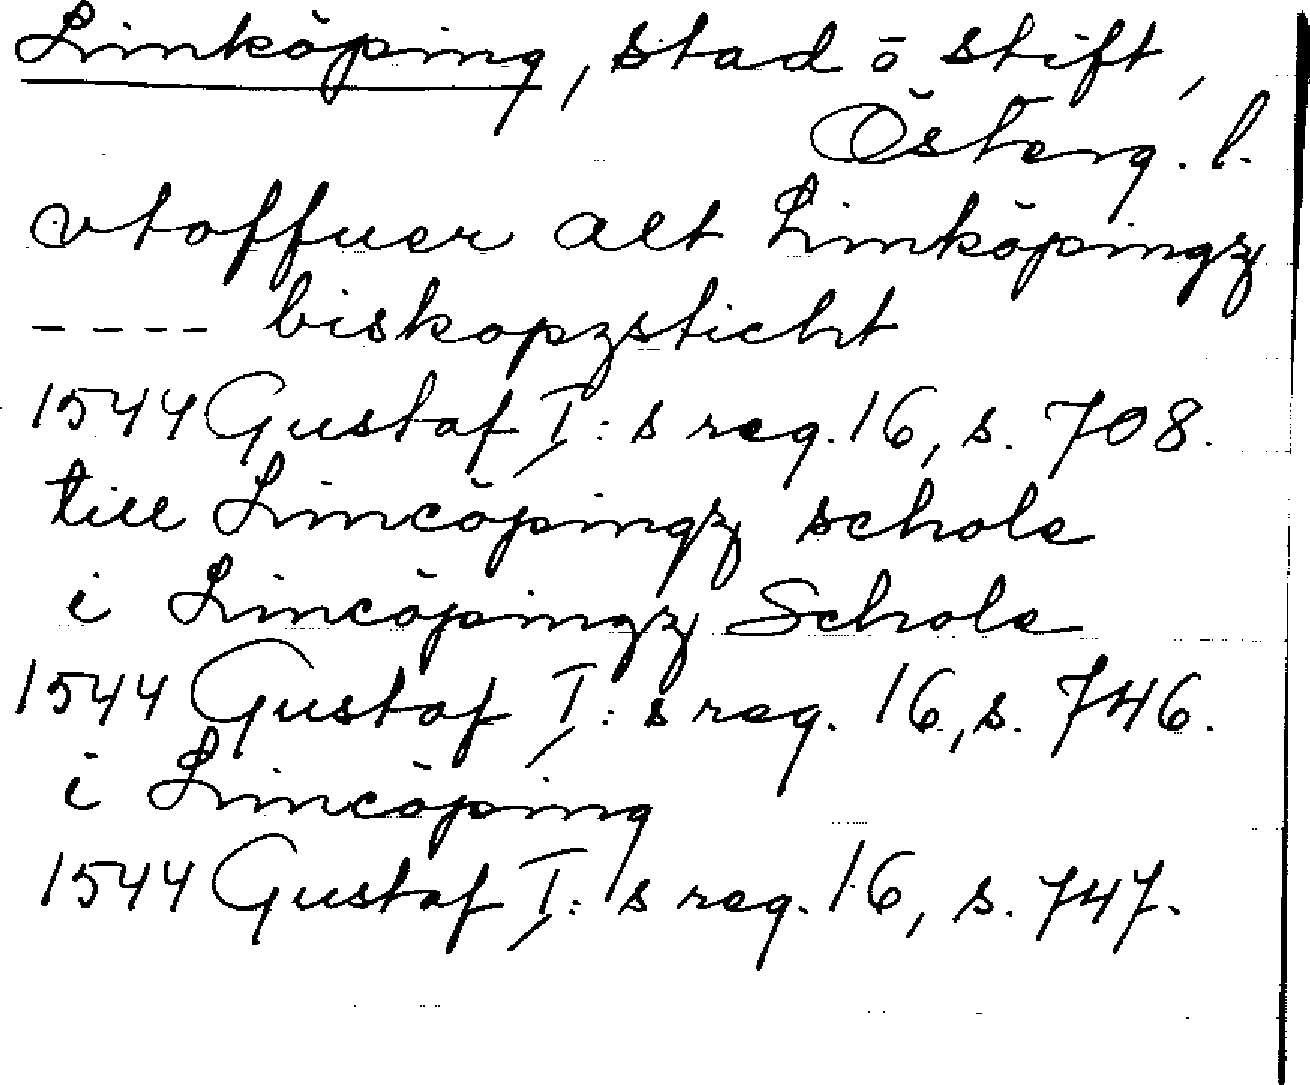 Linköping, stad ō stift,
Österg. l.
vtoffuer alt Linköpingz
---- biskopzsticht
1544 Gustaf I:s reg. 16, s. 708.
till Lincöpingz schole
i Lincöpingz Schole
1544 Gustaf I:s reg. 16, s. 746.
i Lincöping
1544 Gustaf I:s reg. 16, s. 747.